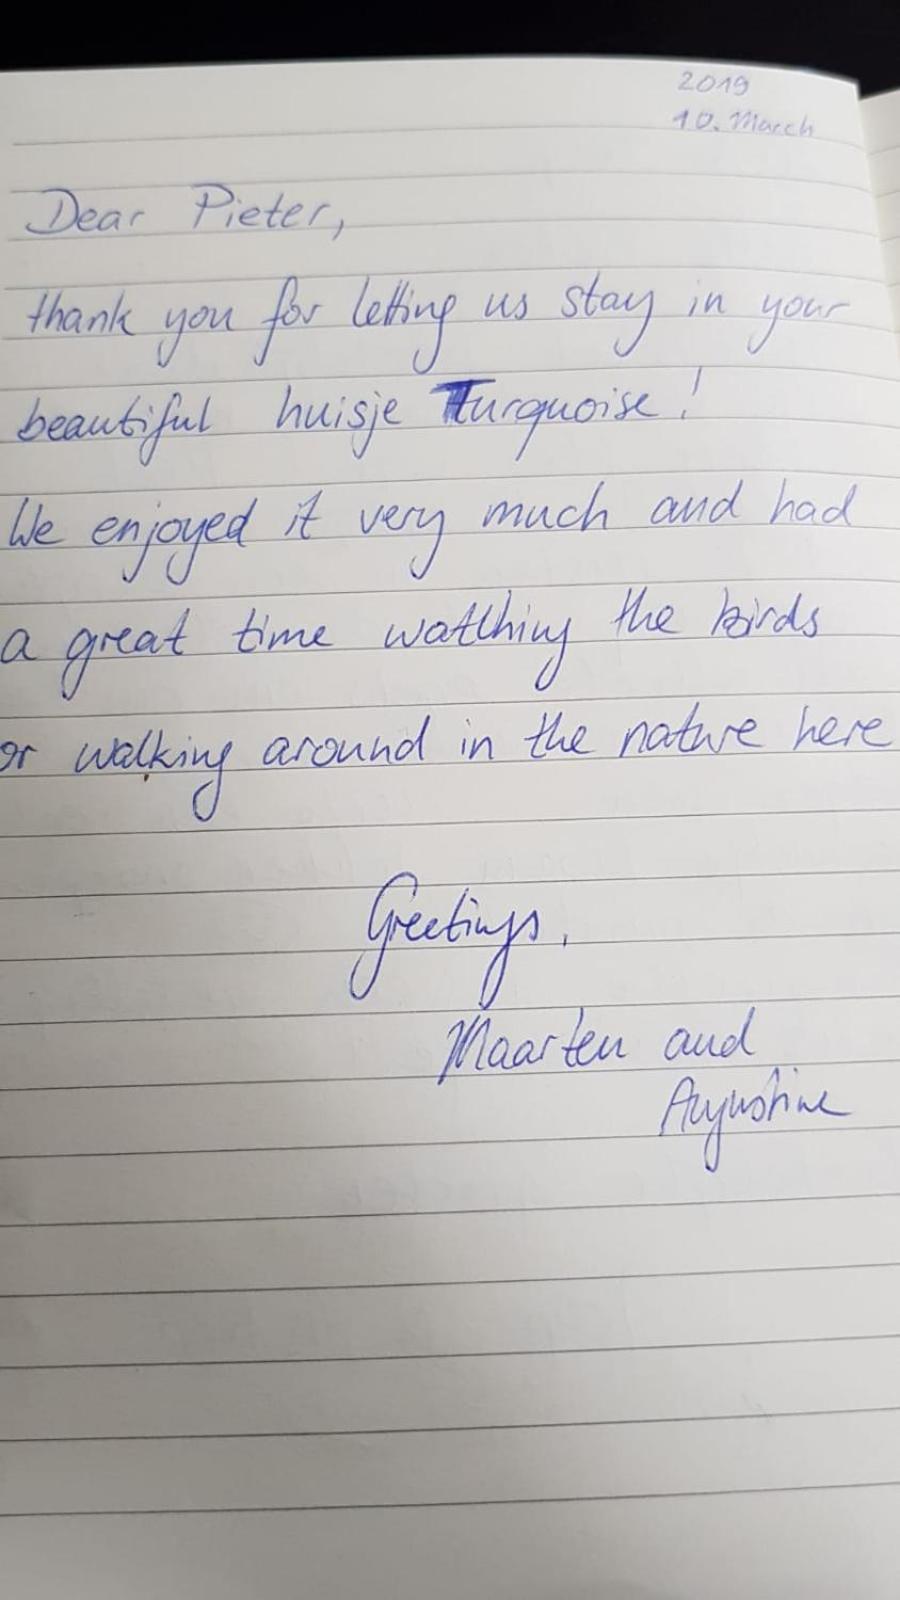 2019
10. March
Dear Pieter,
thank you for letting us stay in your
beautiful huisje Turquoise!
We enjoyed it very much and had
a great time watching the birds
or walking around in the nature here
Greetings,
Maarten and
Augustine